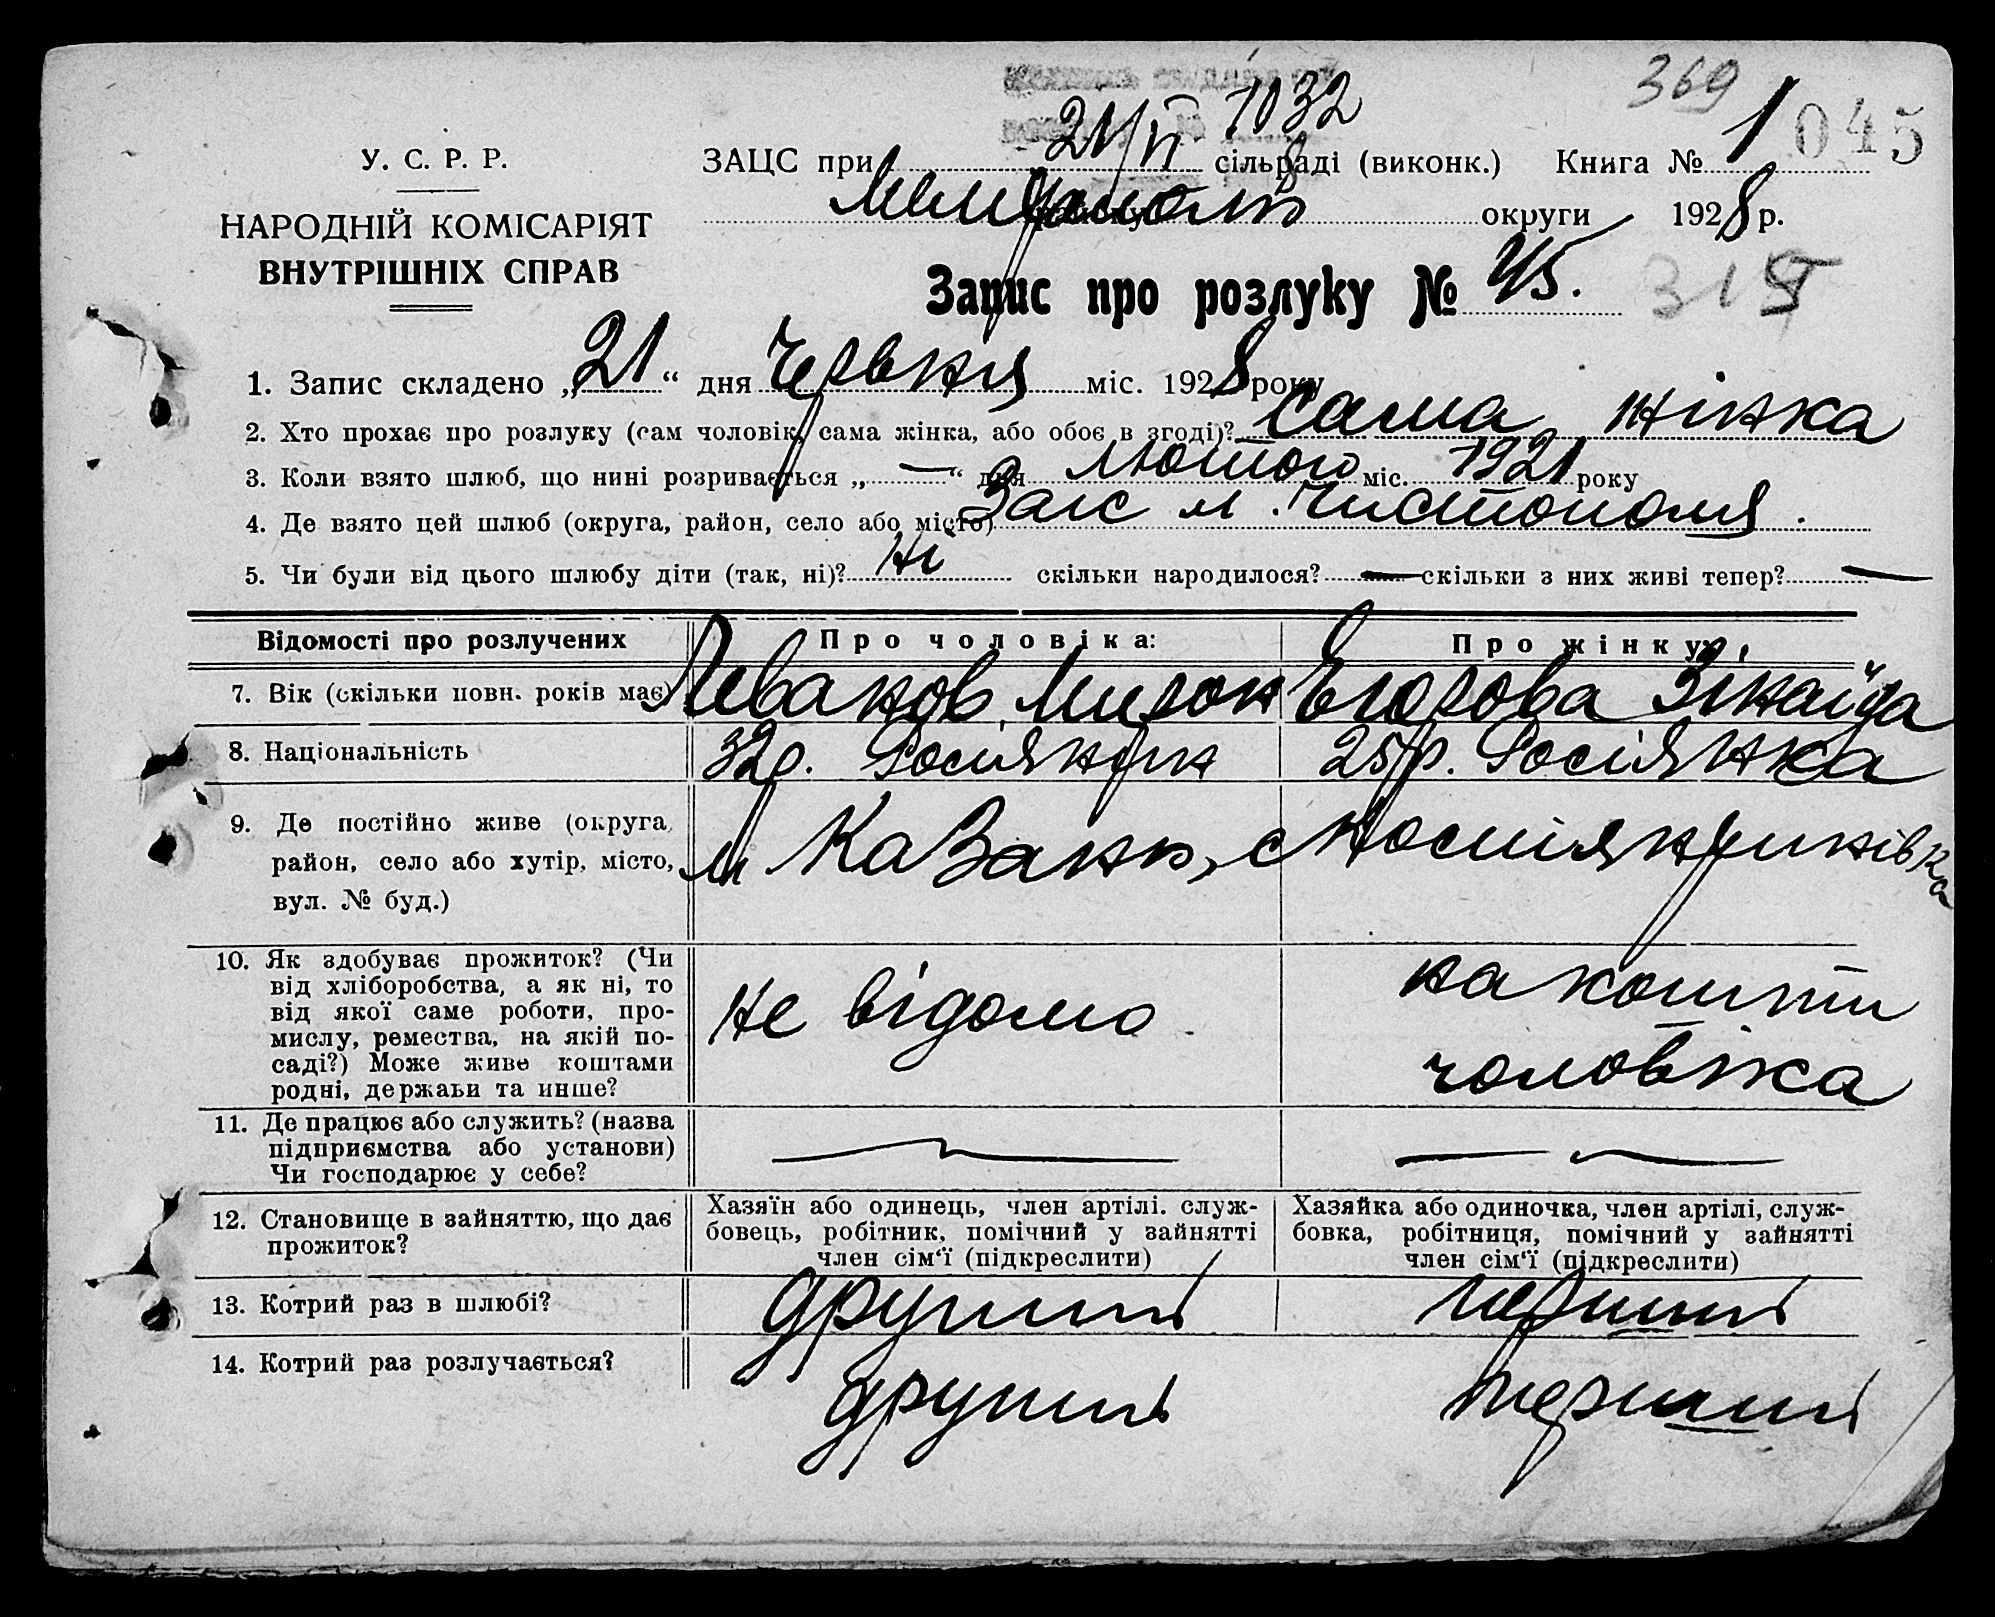 369
21/VI 1032
У. С. Р. Р.
ЗАЦС при сільраді (виконк.) Книга № 1 045
Мелітополь округи 1928 р.
НАРОДНІЙ КОМІСАРІЯТ
ВНУТРІШНІХ СПРАВ
Запис про розлуку № 45. 315
1. Запис складено „21“ дня Червня міс. 1928 року
2. Хто прохає про розлуку (сам чоловік, сама жінка, або обоє в згоді)? Сама жінка
3. Коли взято шлюб, що нині розривається „—“ дня Лютого міс. 1921 року
4. Де взято цей шлюб (округа, район, село або місто) Загс м. Чистополя.
5. Чи були від цього шлюбу діти (так, ні)? Ні скільки народилося? — скільки з них живі тепер? —
Відомості про розлучених Про чоловіка: Про жінку:
7. Вік (скільки повн. років має) Мирон Егорова Зінаїда
8. Національність 32р. Росіянин 25р. Росіянка
9. Де постійно живе (округа, район, село або хутір, місто, вул. № буд.) м Казань, с Костянтинівка
10. Як здобуває прожиток? (Чи
від хліборобства, а як ні, то
від якої саме роботи, про-
мислу, ремества, на якій по-
саді?) Може живе коштами
родні, держави та инше?
Не відомо на кошти
чоловіка
11. Де працює або служить? (назва
підприємства або установи)
Чи господарює у себе?
— —
12. Становище в зайняттю, що дає
прожиток?
Хазяїн або одинець, член артілі. служ-
бовець, робітник, помічний у зайнятті
член сім'ї (підкреслити)
Хазяйка або одиночка, член артілі, служ-
бовка, робітниця, помічний у зайнятті
член сім'ї (підкреслити)
13. Котрий раз в шлюбі? другий перший
14. Котрий раз розлучається? другий перший